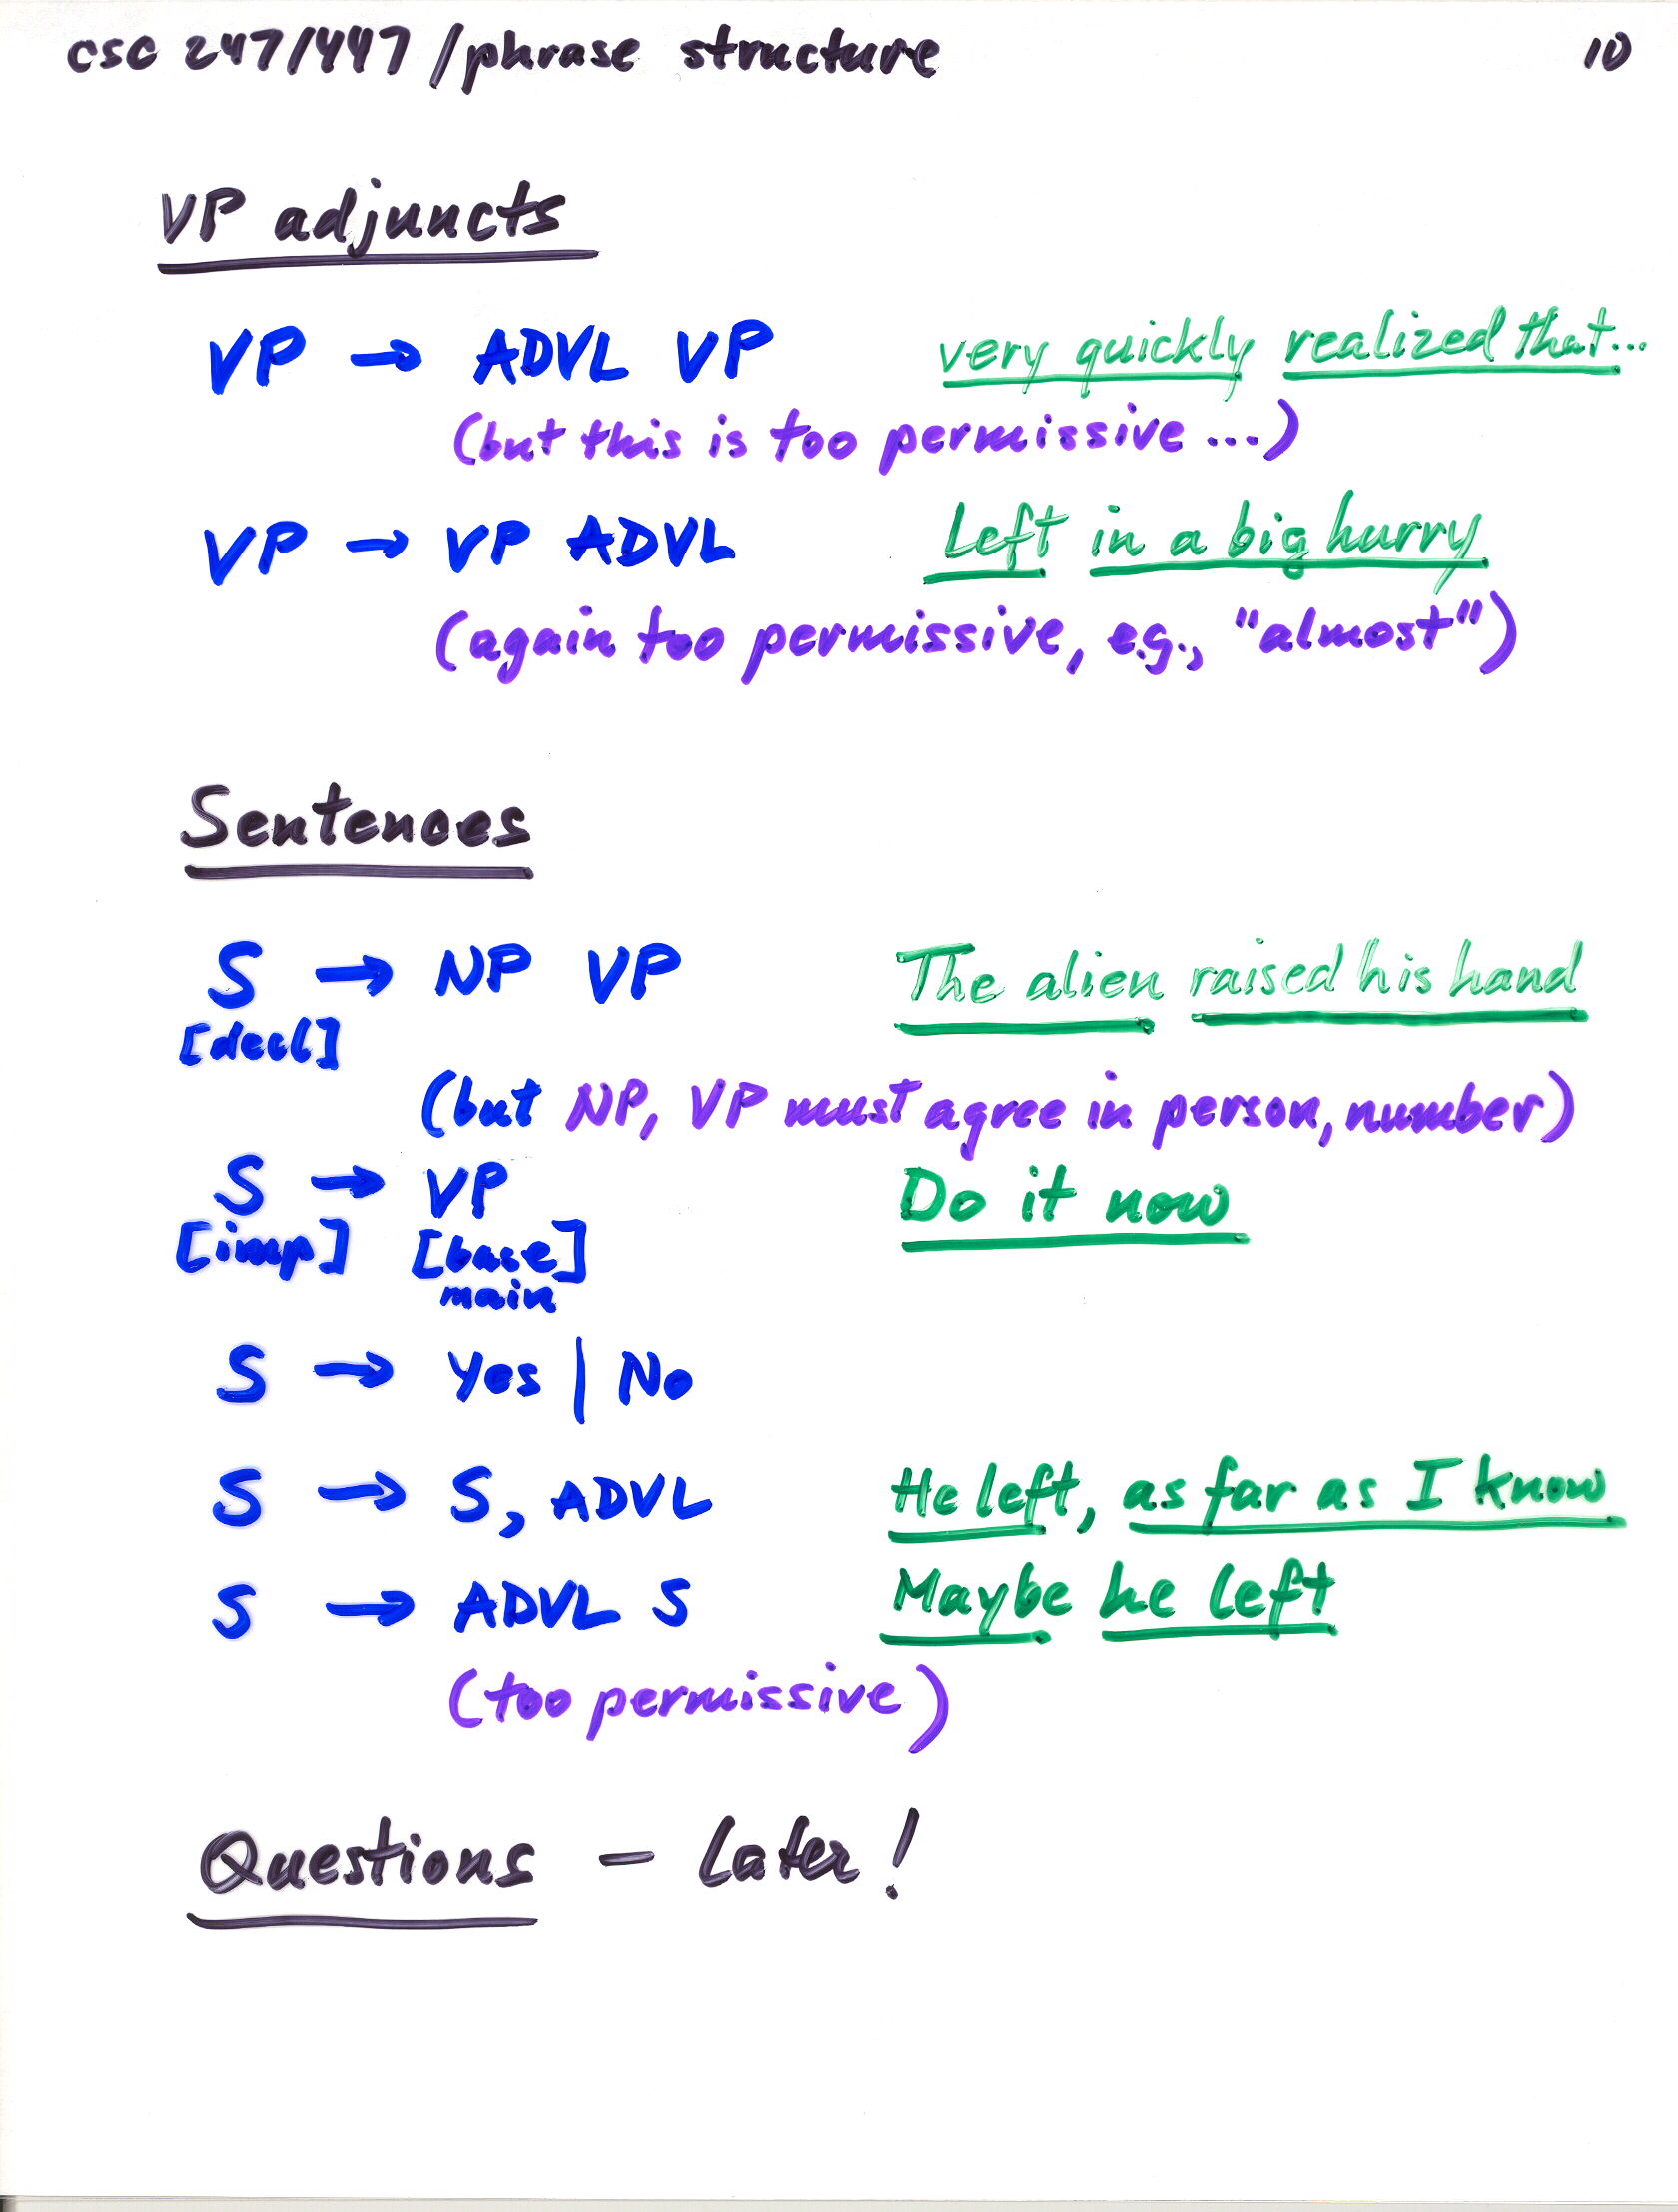 csc 247/447 / phrase structure 10
VP adjuncts
VP → ADVL VP very quickly realized that...
(but this is too permissive ...)
VP → VP ADVL Left in a big hurry
(again too permissive, e.g., "almost")
Sentences
S → NP VP The alien raised his hand
[decl]
(but NP, VP must agree in person, number)
S → VP Do it now
[imp] [base]
main
S → Yes | No
S → S, ADVL He left, as far as I know
S → ADVL S Maybe he left
(too permissive)
Questions – Later!